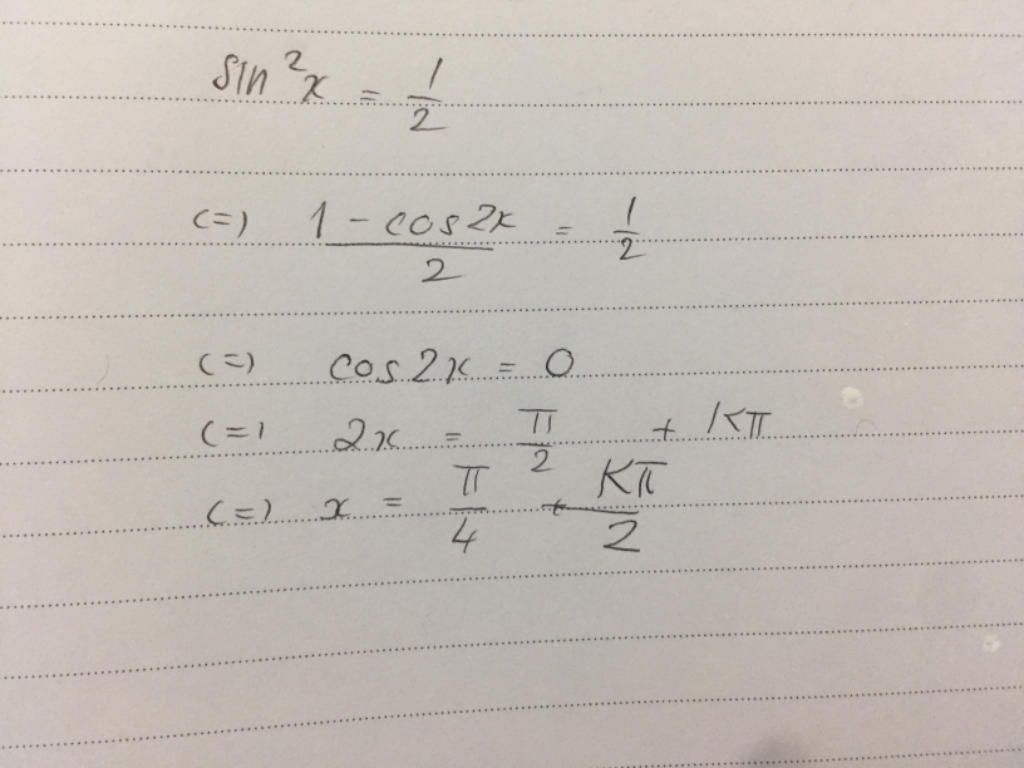 sin²x = 1/2
(=) (1 - cos2x)/2 = 1/2
(=) cos2x = 0
(=) 2x = π/2 + Kπ
(=) x = π/4 + Kπ/2